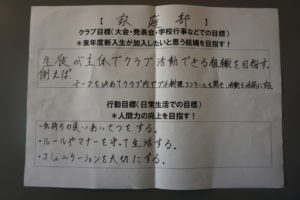 【 家庭部 】
クラブ目標(大会・発表会・学校行事などでの目標)
*来年度新入生が加入したいと思う組織を目指す!
生徒が主体でクラブ活動できる組織を目指す。
例えば
テーマを決めてクラブ内でプチ料理コンクールを開き、活動を活発に
行動目標(日常生活での目標)
*人間力の向上を目指す!
・気持ちの良いあいさつをする。
・ルールやマナーを守って生活する。
・コミュニケーションを大切にする。